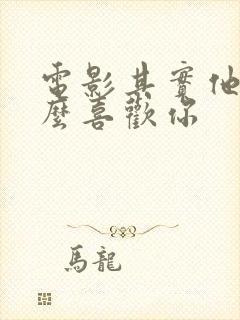 電影其實他
麼喜歡你
馬龍